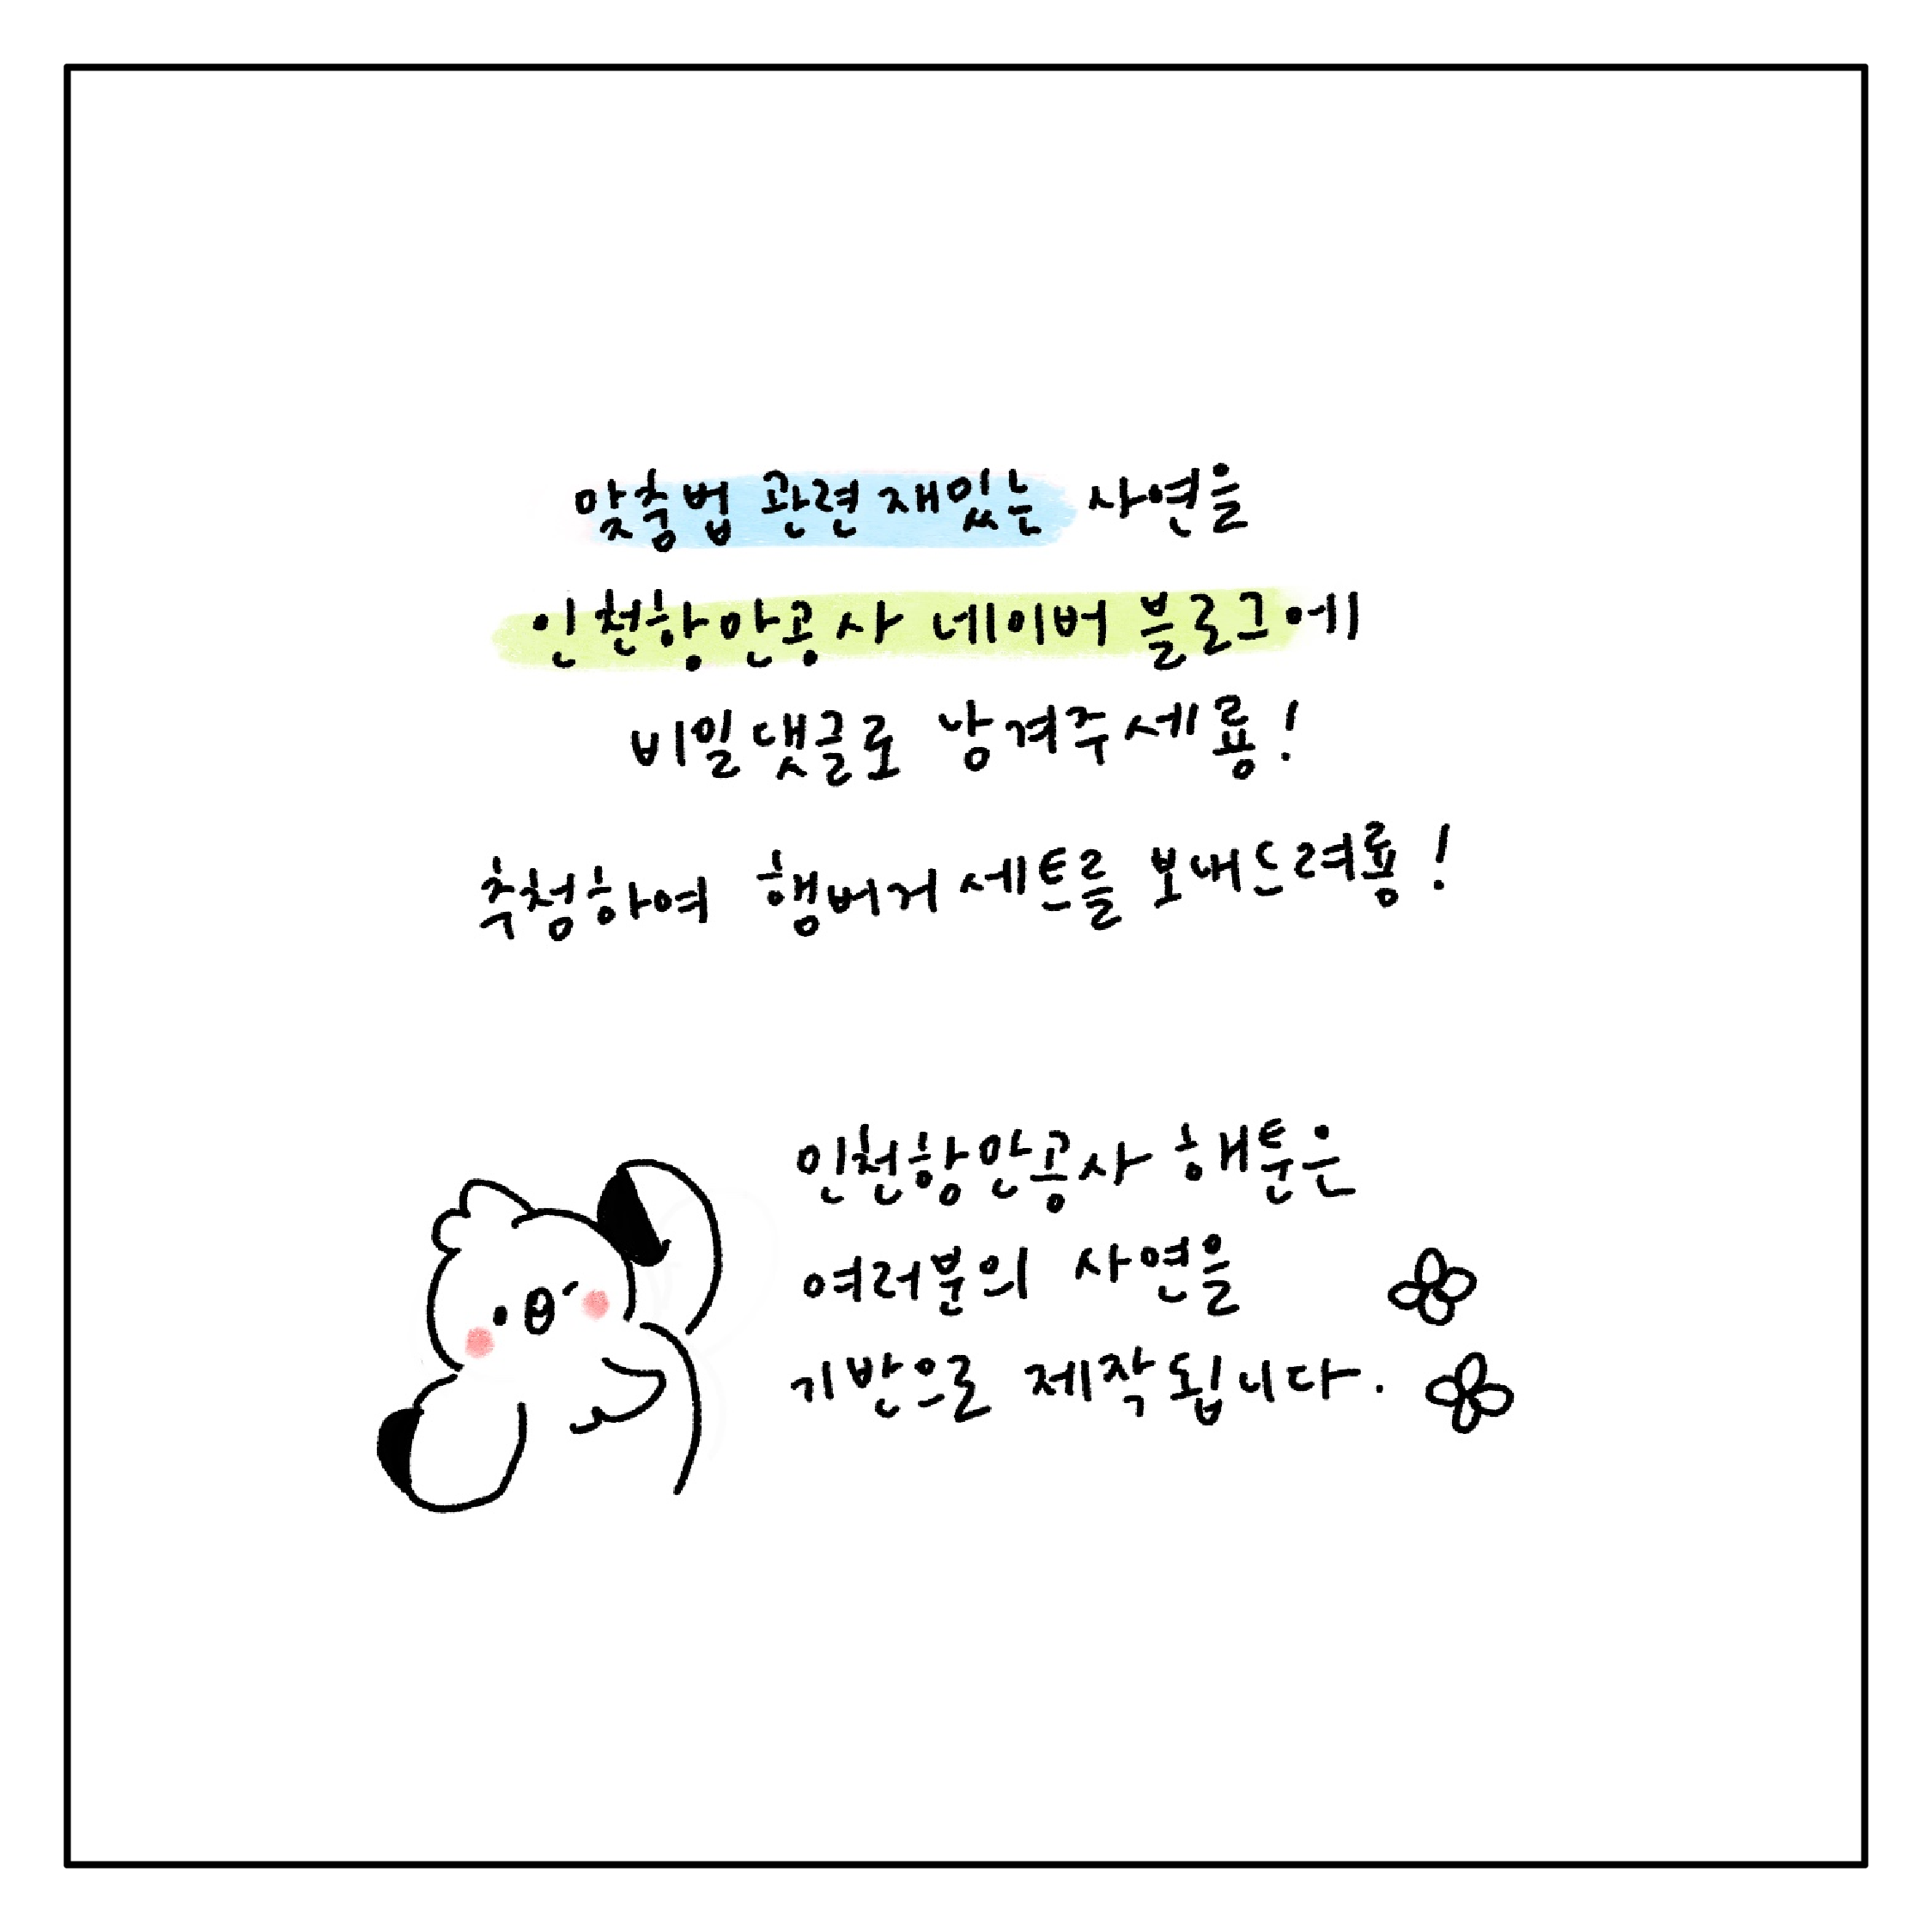 맞춤법 관련 재밌는 사연을
인천항만공사 네이버 블로그에
비밀댓글로 남겨주세룡!
추첨하여 햄버거세트를 보내드려룡!
인천항만공사 해툰은
여러분의 사연을
기반으로 제작됩니다.